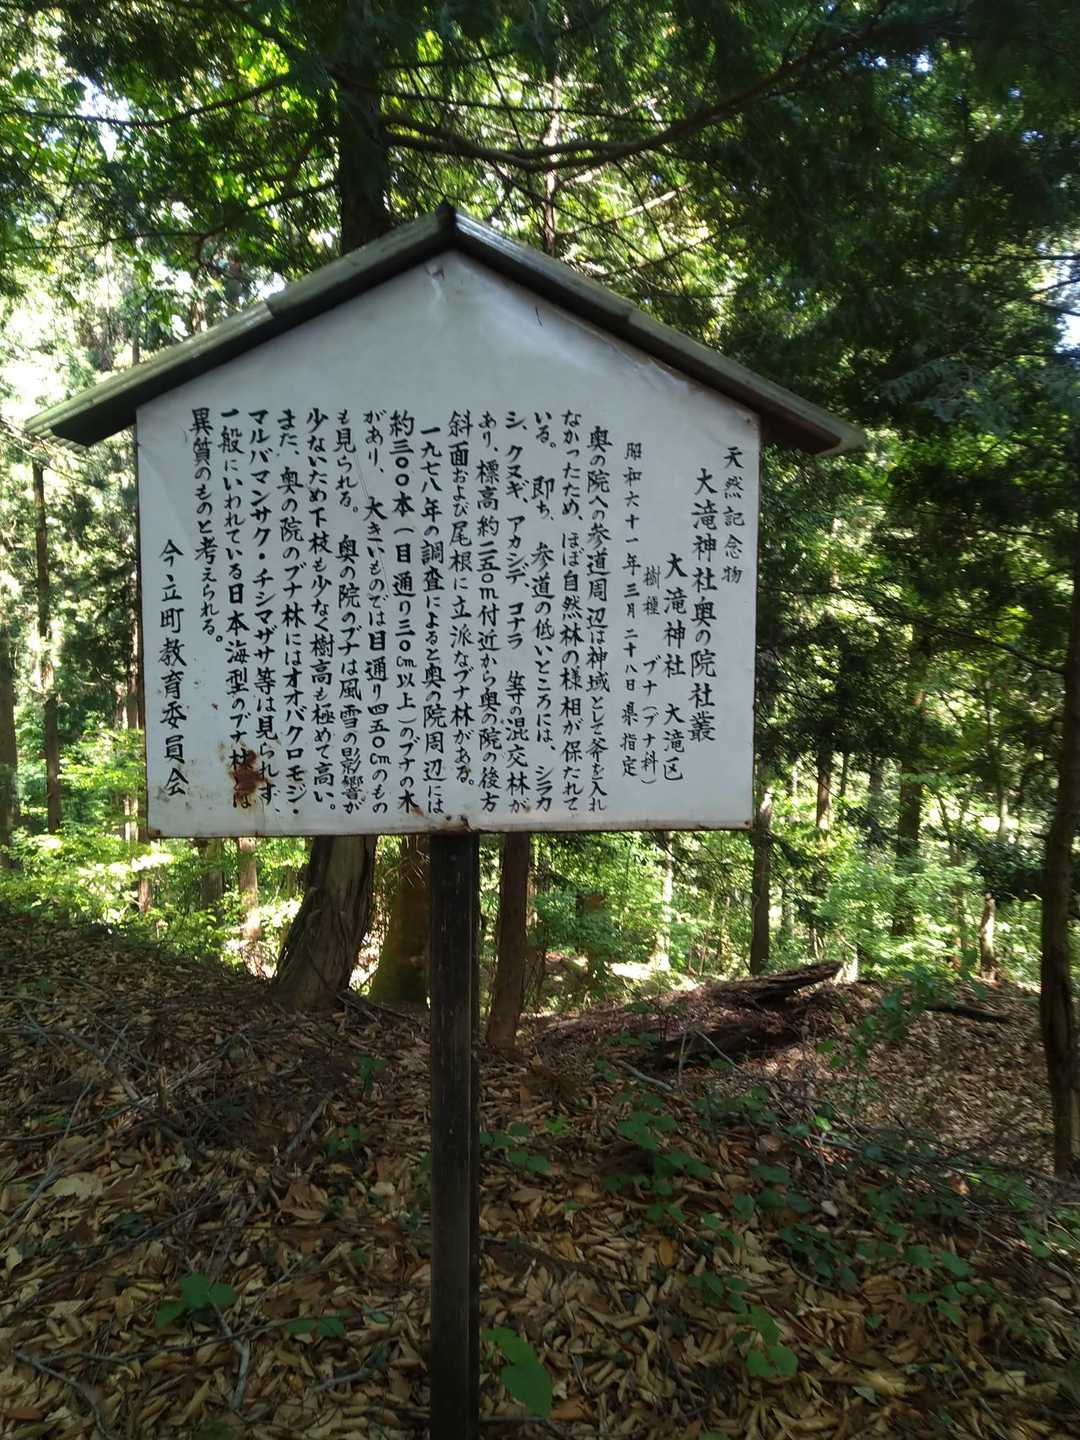 天然記念物
大滝神社奥の院社叢
大滝神社 大滝区
樹種 ブナ(ブナ科)
昭和六十一年三月二十八日県指定
奥の院への参道周辺は神域として斧を入れ
なかったため、ほぼ自然林の様相が保たれて
いる。即ち、参道の低いところには、シラカ
シ、クマギ、アカシデ、コナラ 等の混交林が
あり、標高約二五〇m付近から奥の院の後方
斜面および尾根に立派なブナ林がある。
一九七八年の調査によると奥の院周辺には
約三〇〇本(目通り三〇cm以上)のブナの木
があり、大きいものでは目通り四五〇cmのもの
も見られる。奥の院のブナは風雪の影響が
少ないため下枝も少なく樹高も極めて高い。
また、奥の院のブナ林にはオオバクロモジ・
マルバマンサク・チシマザサ等は見られず、
一般にいわれている日本海型のブナ林とは
異質のものと考えられる。
今立町教育委員会